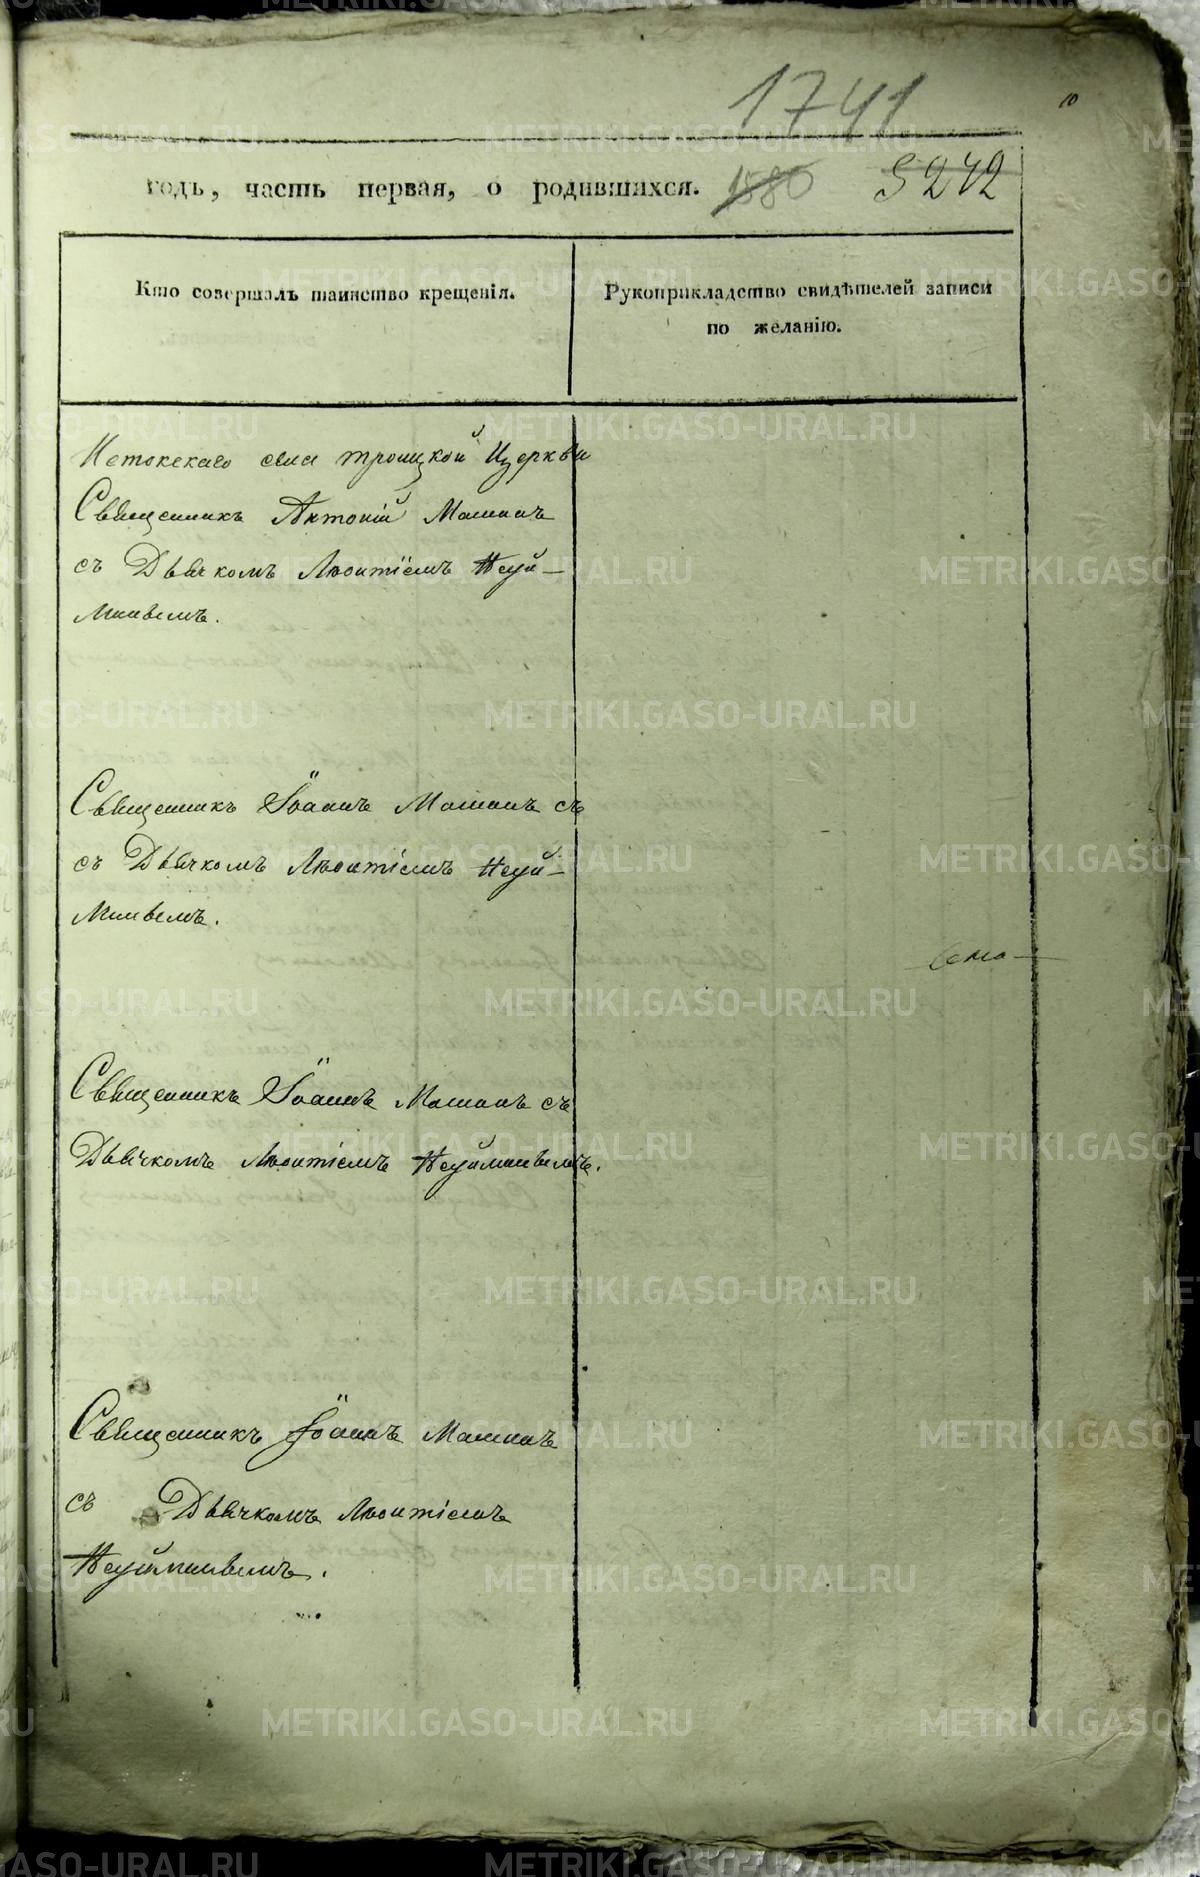 1741
10
годъ, часть первая, о родившихся. 1880 5272
Кто совершалъ таинство крещенія.
Рукоприкладство свидѣтелей записи
по желанію.
Истокскаго села Троицкой Церкви
Священникъ Антоній
съ Дьячкомъ Леонтіемъ Неуй-
минымъ.
Священникъ Іоаннъ съ
съ Дьячкомъ Леонтіемъ Неуй-
минымъ.
Священникъ Іоаннъ съ
Дьячкомъ Леонтіемъ Неуйминымъ.
Священникъ Іоаннъ
съ Дьячкомъ Леонтіемъ
Неуйминымъ.
METRIKI.GASO-URAL.RU